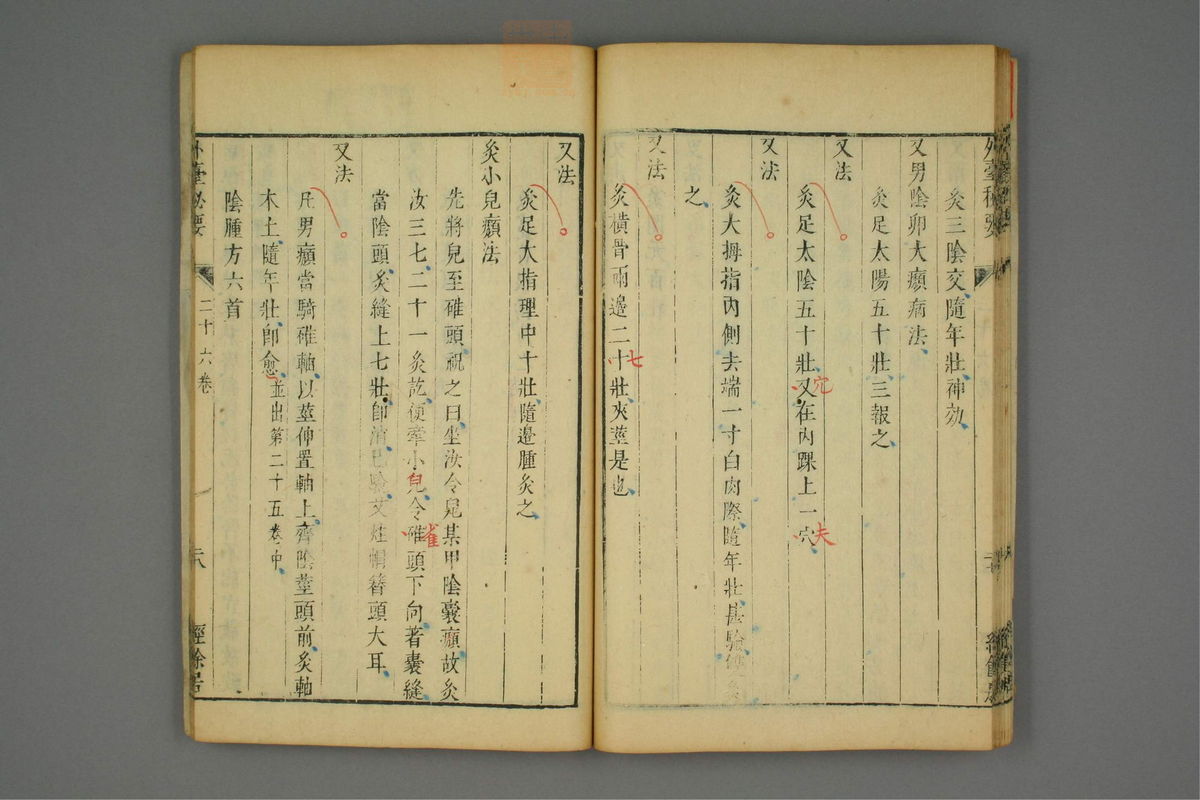 外臺秘要
灸三陰交隨年壯神効
又男陰卵大㿗病法
灸足太陽五十壯三報之
又法
灸足太陰五十壯又在內踝上一穴
穴
夫
又法
灸大拇指內側去端一寸白肉際隨年壯甚驗
之
又法
灸橫骨兩邊二十壯夾莖是也
七
又法
灸足大指理中十壯隨邊腫灸之
灸小兒㿗法
先將兒至碓頭祝之曰坐汝令兒某甲陰囊㿗故灸
汝三七二十一灸訖便牽小兒令碓頭下向著囊縫
雀
當陰頭灸縫上七壯即消已驗艾炷帽簪頭大耳
又法
凡男㿗當騎碓軸以莖伸置軸上齊陰莖頭前灸軸
木上隨年壯即愈並出第二十五卷中
陰腫方六首
外臺秘要
二十六卷
六
經餘居